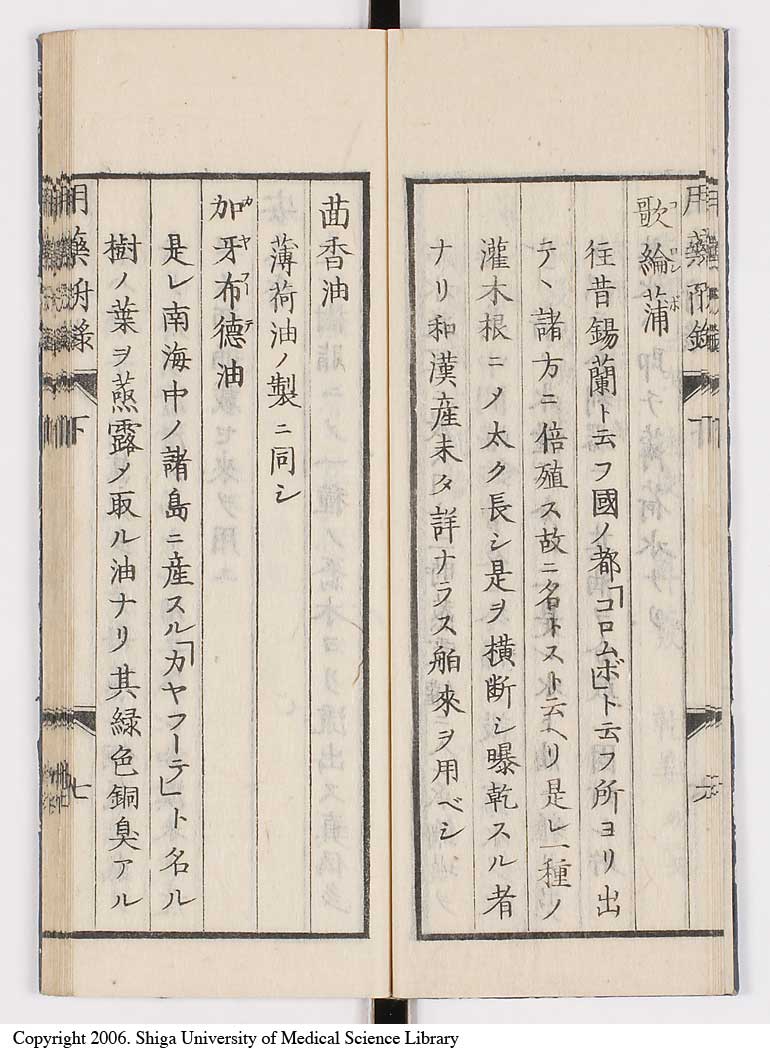 用藥附錄 下 六
歌綸蒲 コロンボ
往昔錫蘭ト云フ國ノ都「コロムボ」ト云フ所ヨリ出
テヽ諸方ニ倍殖ス故ニ名トスト云ヘリ是レ一種ノ
灌木根ニメ太ク長シ是ヲ橫斷シ曝乾スル者
ナリ和漢産未タ詳ナラス舶來ヲ用ベシ
茴香油
薄荷油ノ製ニ同シ
加牙布德油 カヤフーテ
是レ南海中ノ諸島ニ産スル「カヤフーテ」ト名ル
樹ノ葉ヲ蒸露メ取ル油ナリ其綠色銅臭アル
用藥附錄 下 七
Copyright 2006. Shiga University of Medical Science Library